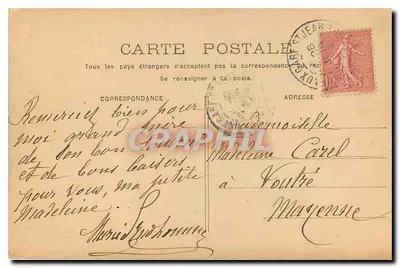 CARTE POSTALE
Tous les pays étrangers n'acceptent pas la correspondance
Se renseigner à la poste.
CORRESPONDANCE
ADRESSE
Remerciez bien pour
moi grand
de bon bon
et de bons baisers
pour vous, ma petite
Madeleine.
Mademoiselle
Madeleine Carel
à Voutré
Mayenne
CPHRAGIL
10